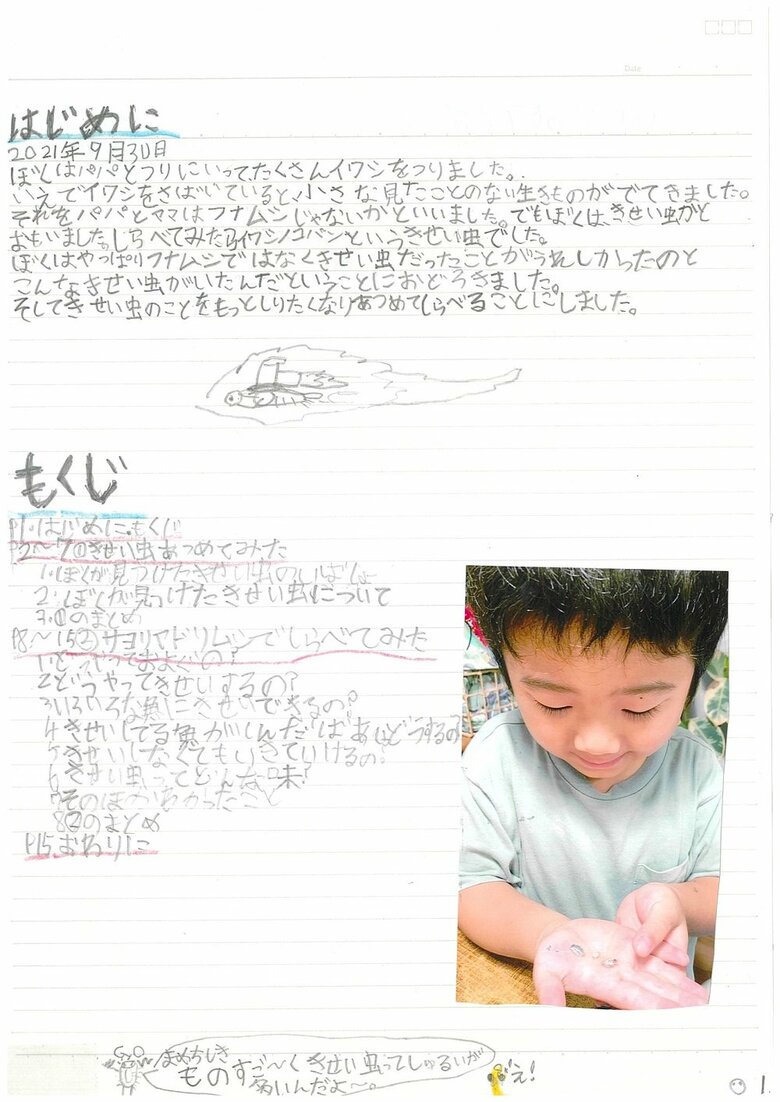 Date
はじめに
2021年9月30日
ぼくはパパとつりにいって、たくさんイワシをつりました。
いえでイワシをさばいていると、小さな見たことのない生きものがでてきました。
それをパパとママはフナムシじゃないかといいました。でもぼくは、きせい虫かと
おもいました。しらべてみたらイワシノコバンというきせい虫でした。
ぼくはやっぱりフナムシではなくきせい虫だったことがうれしかったのと
こんなきせい虫がいたんだということにおどろきました。
そしてきせい虫のことをもっとしりたくなりあつめてしらべることにしました。
もくじ
P1.はじめに.もくじ
P2〜7①きせい虫あつめてみた
1.ぼくが見つけたきせい虫のいばしょ
2.ぼくが見つけたきせい虫について
3.①のまとめ
P8〜15②サヨリヤドリムシでしらべてみた
1どうやっておよぐの?
2どうやってきせいするの?
3いろいろな魚にきせいできるの?
4きせいしてる魚がしんだばあいどうするの
5きせいしなくてもいきていけるの?
6きせい虫ってどんな味?
7そのほかわかったこと
8②のまとめ
P15おわりに
まめちしき
ものすご〜くきせい虫ってしゅるいが
多いんだよ〜。
え!
1